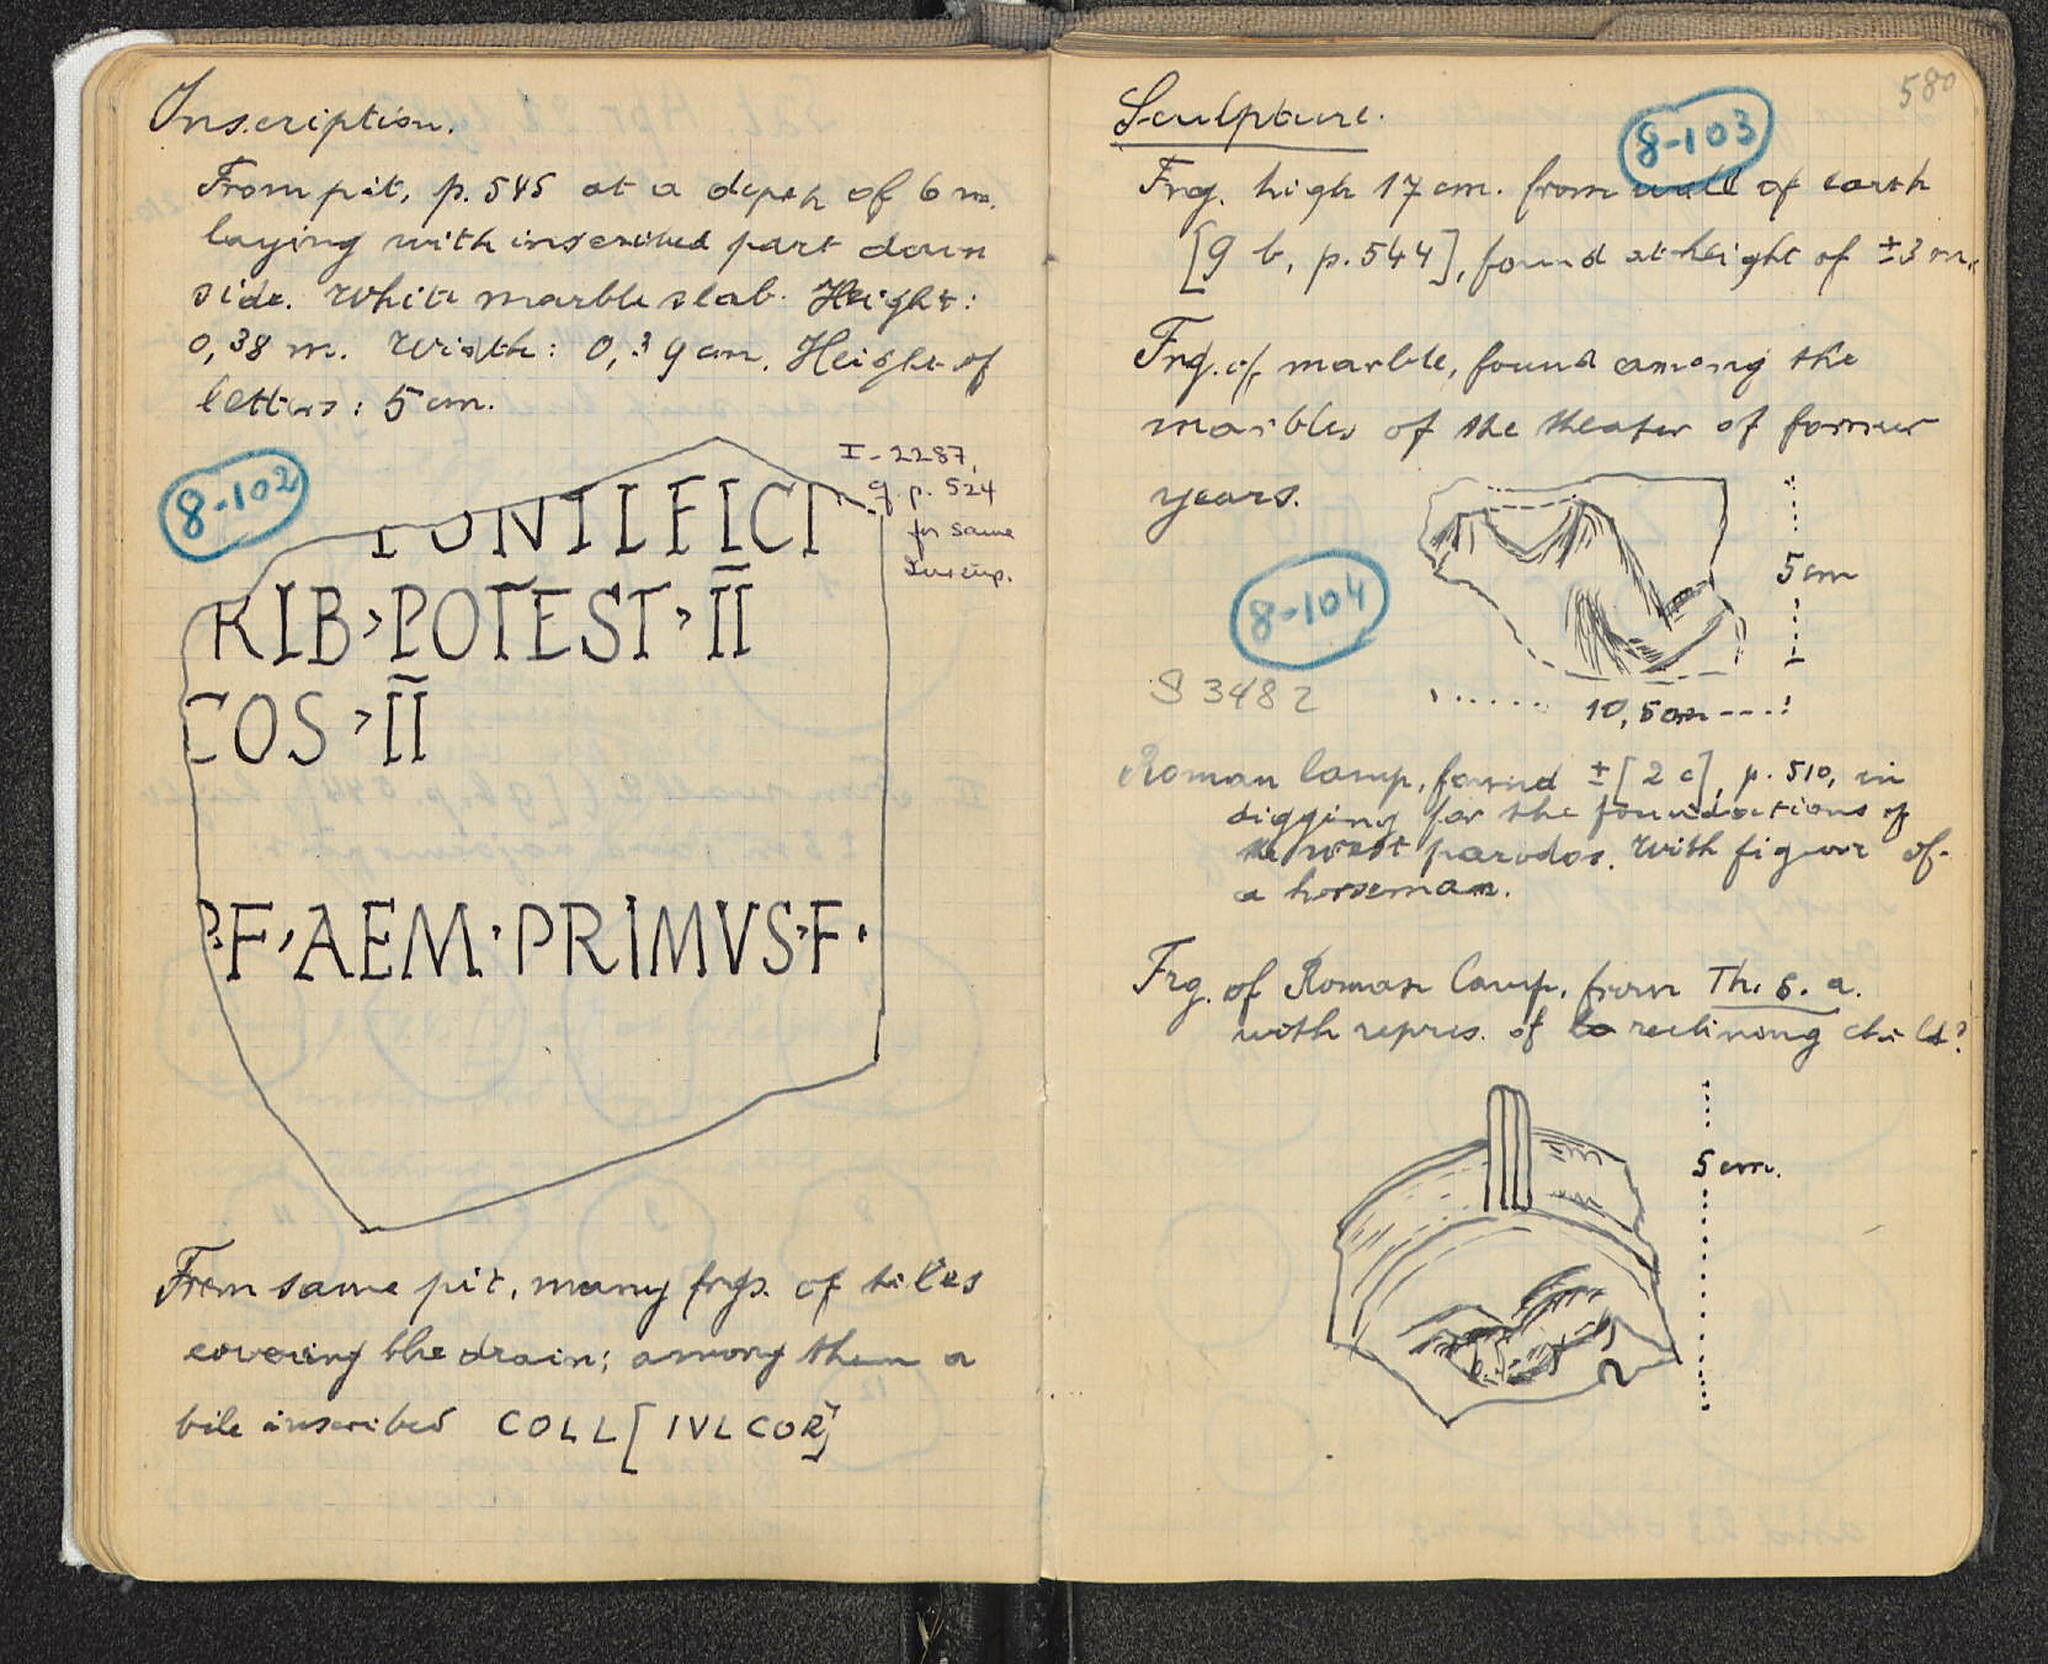 Inscription.
From pit, p. 545 at a depth of 6 m.
laying with inscribed part down
side. White marble slab. Height:
0,38 m. Width: 0,39 cm. Height of
letters: 5 cm.
8-102
I-2287,
cf. p. 524
for same
inscrip.
PONTIFICI
RIB > POTEST > II
COS > II
P·F, AEM · PRIMVS·F·
From same pit, many frgs. of tiles
covering the drain; among them a
tile inscribed COLL[IVLCOR]
580
Sculpture.
8-103
Frg. high 17 cm. from wall of earth
[9 b, p. 544], found at height of ±3 m.
Frg. of marble, found among the
marbles of the theater of former
years.
5 cm
8-104
S 3482
10,5 cm
Roman lamp, found ± [2 c], p. 510, in
digging for the foundations of
the west parodos. With figure of
a horseman.
Frg. of Roman Lamp, from Th. 6. a.
with repres. of reclining child?
5 cm.